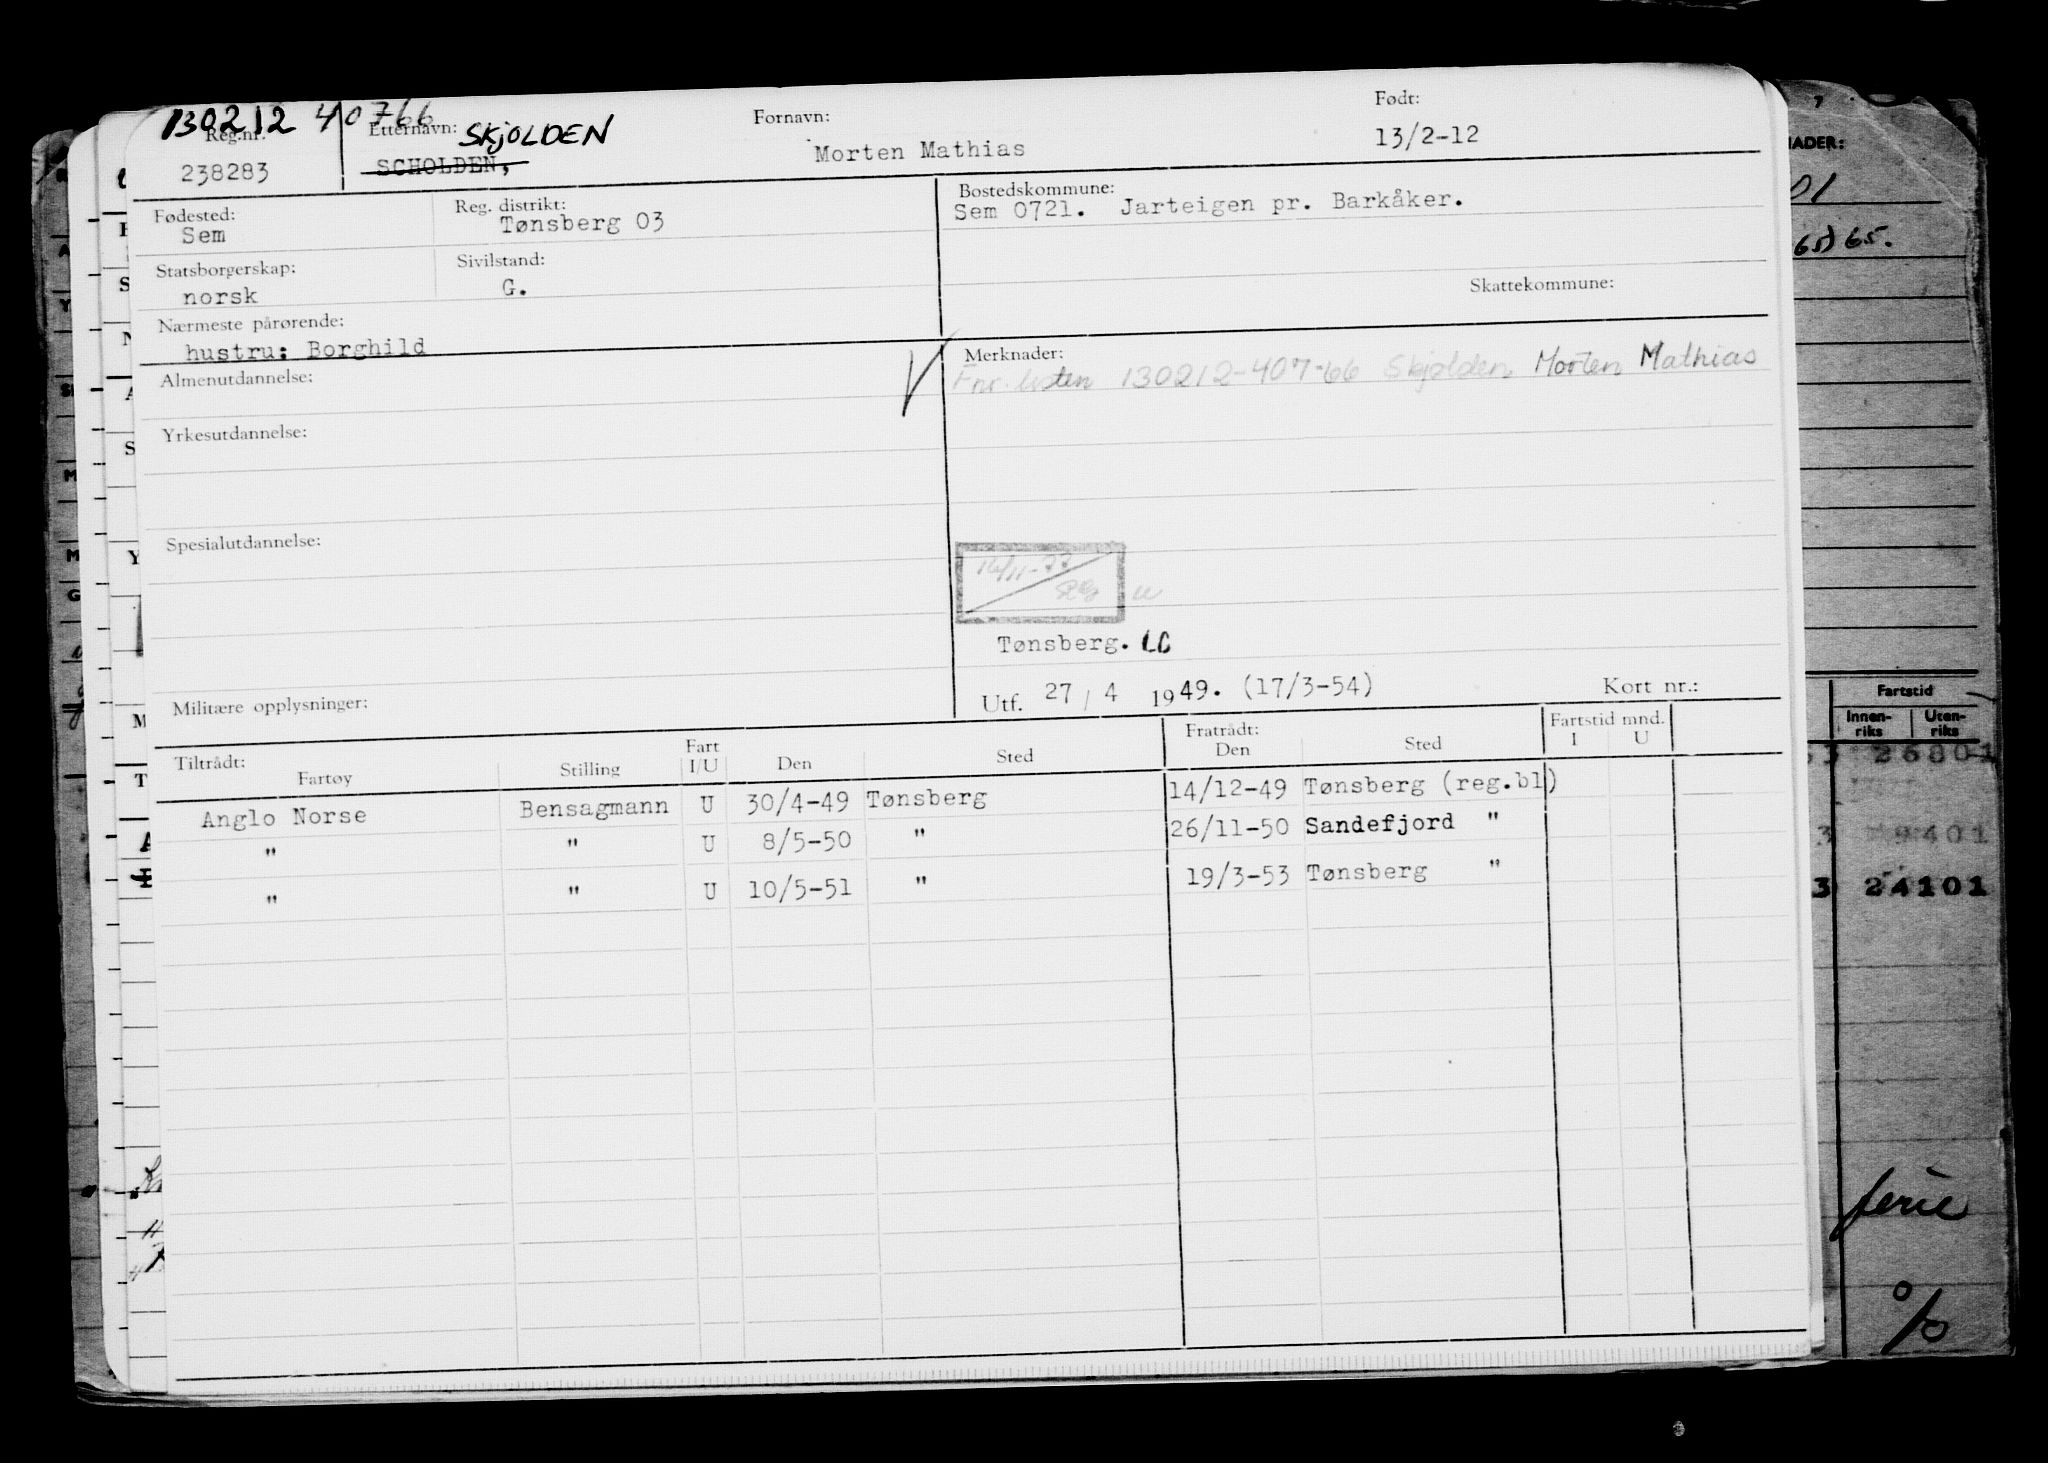 130212 40766
Reg.nr. Etternavn: SKJOLDEN Fornavn: Født:
238283 SCHOLDEN, Morten Mathias 13/2-12
Fødested: Reg. distrikt: Bostedskommune:
Sem Tønsberg 03 Sem 0721. Jarteigen pr. Barkåker.
Statsborgerskap: Sivilstand: Skattekommune:
norsk G.
Nærmeste pårørende:
hustru: Borghild
Almenutdannelse: Merknader:
Fnr. listen 130212-407-66 Skjolden Morten Mathias
Yrkesutdannelse:
Spesialutdannelse:
Tønsberg. LC
Militære opplysninger: Utf. 27 / 4 1949. (17/3-54) Kort nr.:
Tiltrådt: Fratrådt: Fartstid mnd.
Fartøy Stilling Fart I/U Den Sted Den Sted I U
Anglo Norse Bensagmann U 30/4-49 Tønsberg 14/12-49 Tønsberg (reg.bl)
" " U 8/5-50 " 26/11-50 Sandefjord "
" " U 10/5-51 " 19/3-53 Tønsberg "
NADER:
01
65) 65.
Fartstid
Innen-riks Uten-riks
3 26801
3 9401
3 24101
ferie